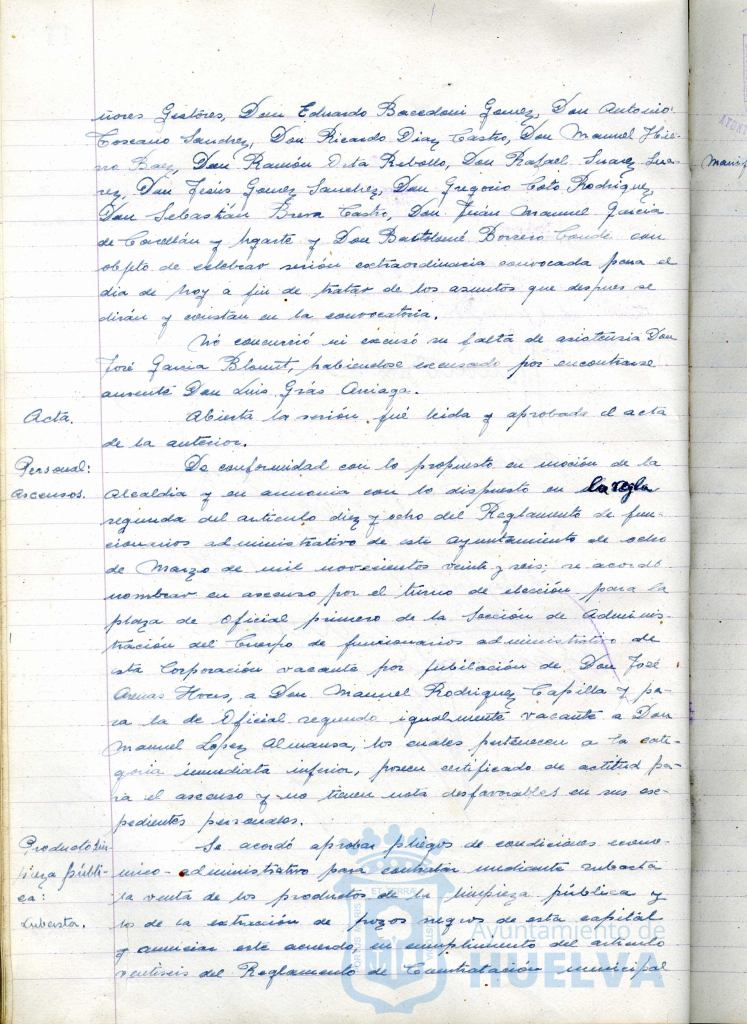 ñores Gestores, Don Eduardo Bacedoni Gomez, Don Antonio
Toscano Sanchez, Don Ricardo Diaz Castro, Don Manuel Hie-
rro Baez, Don Ramón Orta Rebollo, Don Rafael Suarez Suas
rez, Don Jesús Gomez Sanchez, Don Gregorio Coto Rodriguez,
Don Sebastián Breva Castro, Don Juan Manuel Garcia
de Castellán y Ugarte y Don Bartolomé Borrero Conde con
objeto de celebrar sesión extraordinaria convocada para el
dia de hoy a fin de tratar de los asuntos que despues se
dirán y constan en la convocatoria.
No concurrió ni excusó su falta de asistencia Don
José Garcia Blount, habiendose excusado por encontrarse
ausente Don Luis Grás Arriaga.
Acta.
Abierta la sesión fué leida y aprobada el acta
de la anterior.
Personal:
ascensos.
De conformidad con lo propuesto en moción de la
Alcaldia y en armonia con lo dispuesto en la regla
segunda del articulo diez y ocho del Reglamento de fun-
cionarios administrativo de este Ayuntamiento de ocho
de Marzo de mil novecientos veinte y seis; se acordó
nombrar en ascenso por el turno de elección para la
plaza de Oficial primero de la Sección de Adminis-
tración del Cuerpo de funcionarios administrativo de
esta Corporación vacante por jubilación de Don José
Arenas a Don Manuel Rodriguez Capilla y pa-
ra la de Oficial segundo igualmente vacante a Don
Manuel Lopez Almansa, los cuales pertenecen a la cate-
goria inmediata inferior, poseen certificado de actitud pa-
ra el ascenso y no tienen nota desfavorables en sus ex-
pedientes personales.
Producto Lim-
pieza públi-
ca:
Subasta.
Se acordó aprobar pliegos de condiciones econo-
mico-administrativo para contratar mediante subasta
la venta de los productos de la limpieza pública y
los de la extracción de pozos negros de esta capital
y anunciar este acuerdo, en cumplimiento del articulo
veintiseis del Reglamento de Contratación municipal
Ayuntamiento de
HUELVA